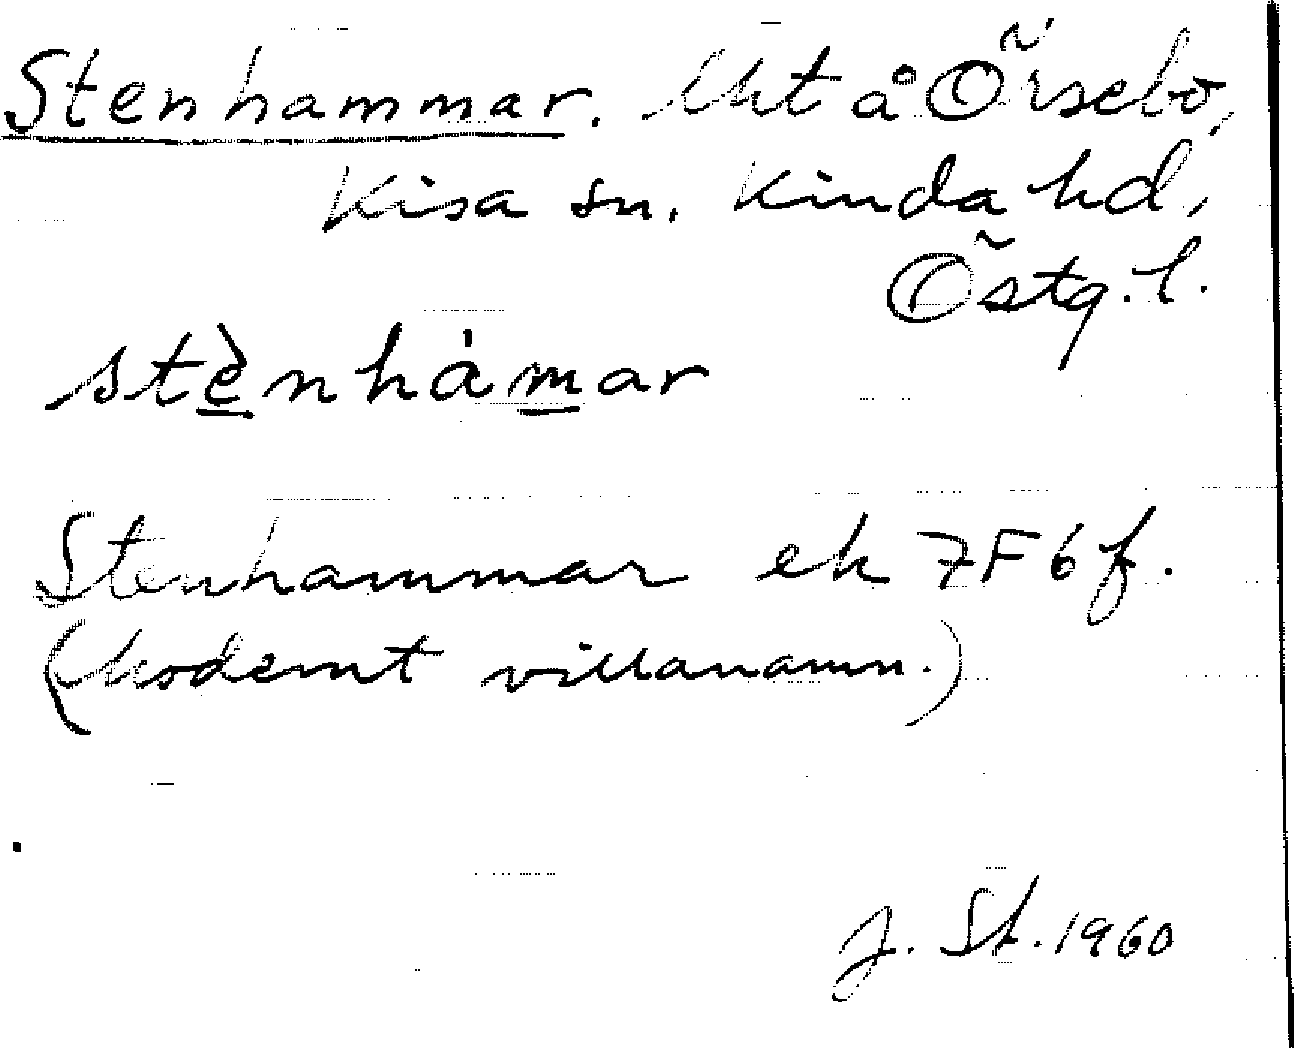 Stenhammar. Uht å Örsebo,
Kisa sn. Kinda hd,
Östg. l.
stènhámar
Stenhammar ek 7F6f.
(Modernt villanamn.)
J. St. 1960